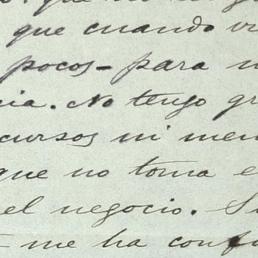 que no
que cuando
pocos - para
ia. No tengo
cursos ni
que no toma e
el negocio. S
me ha conf